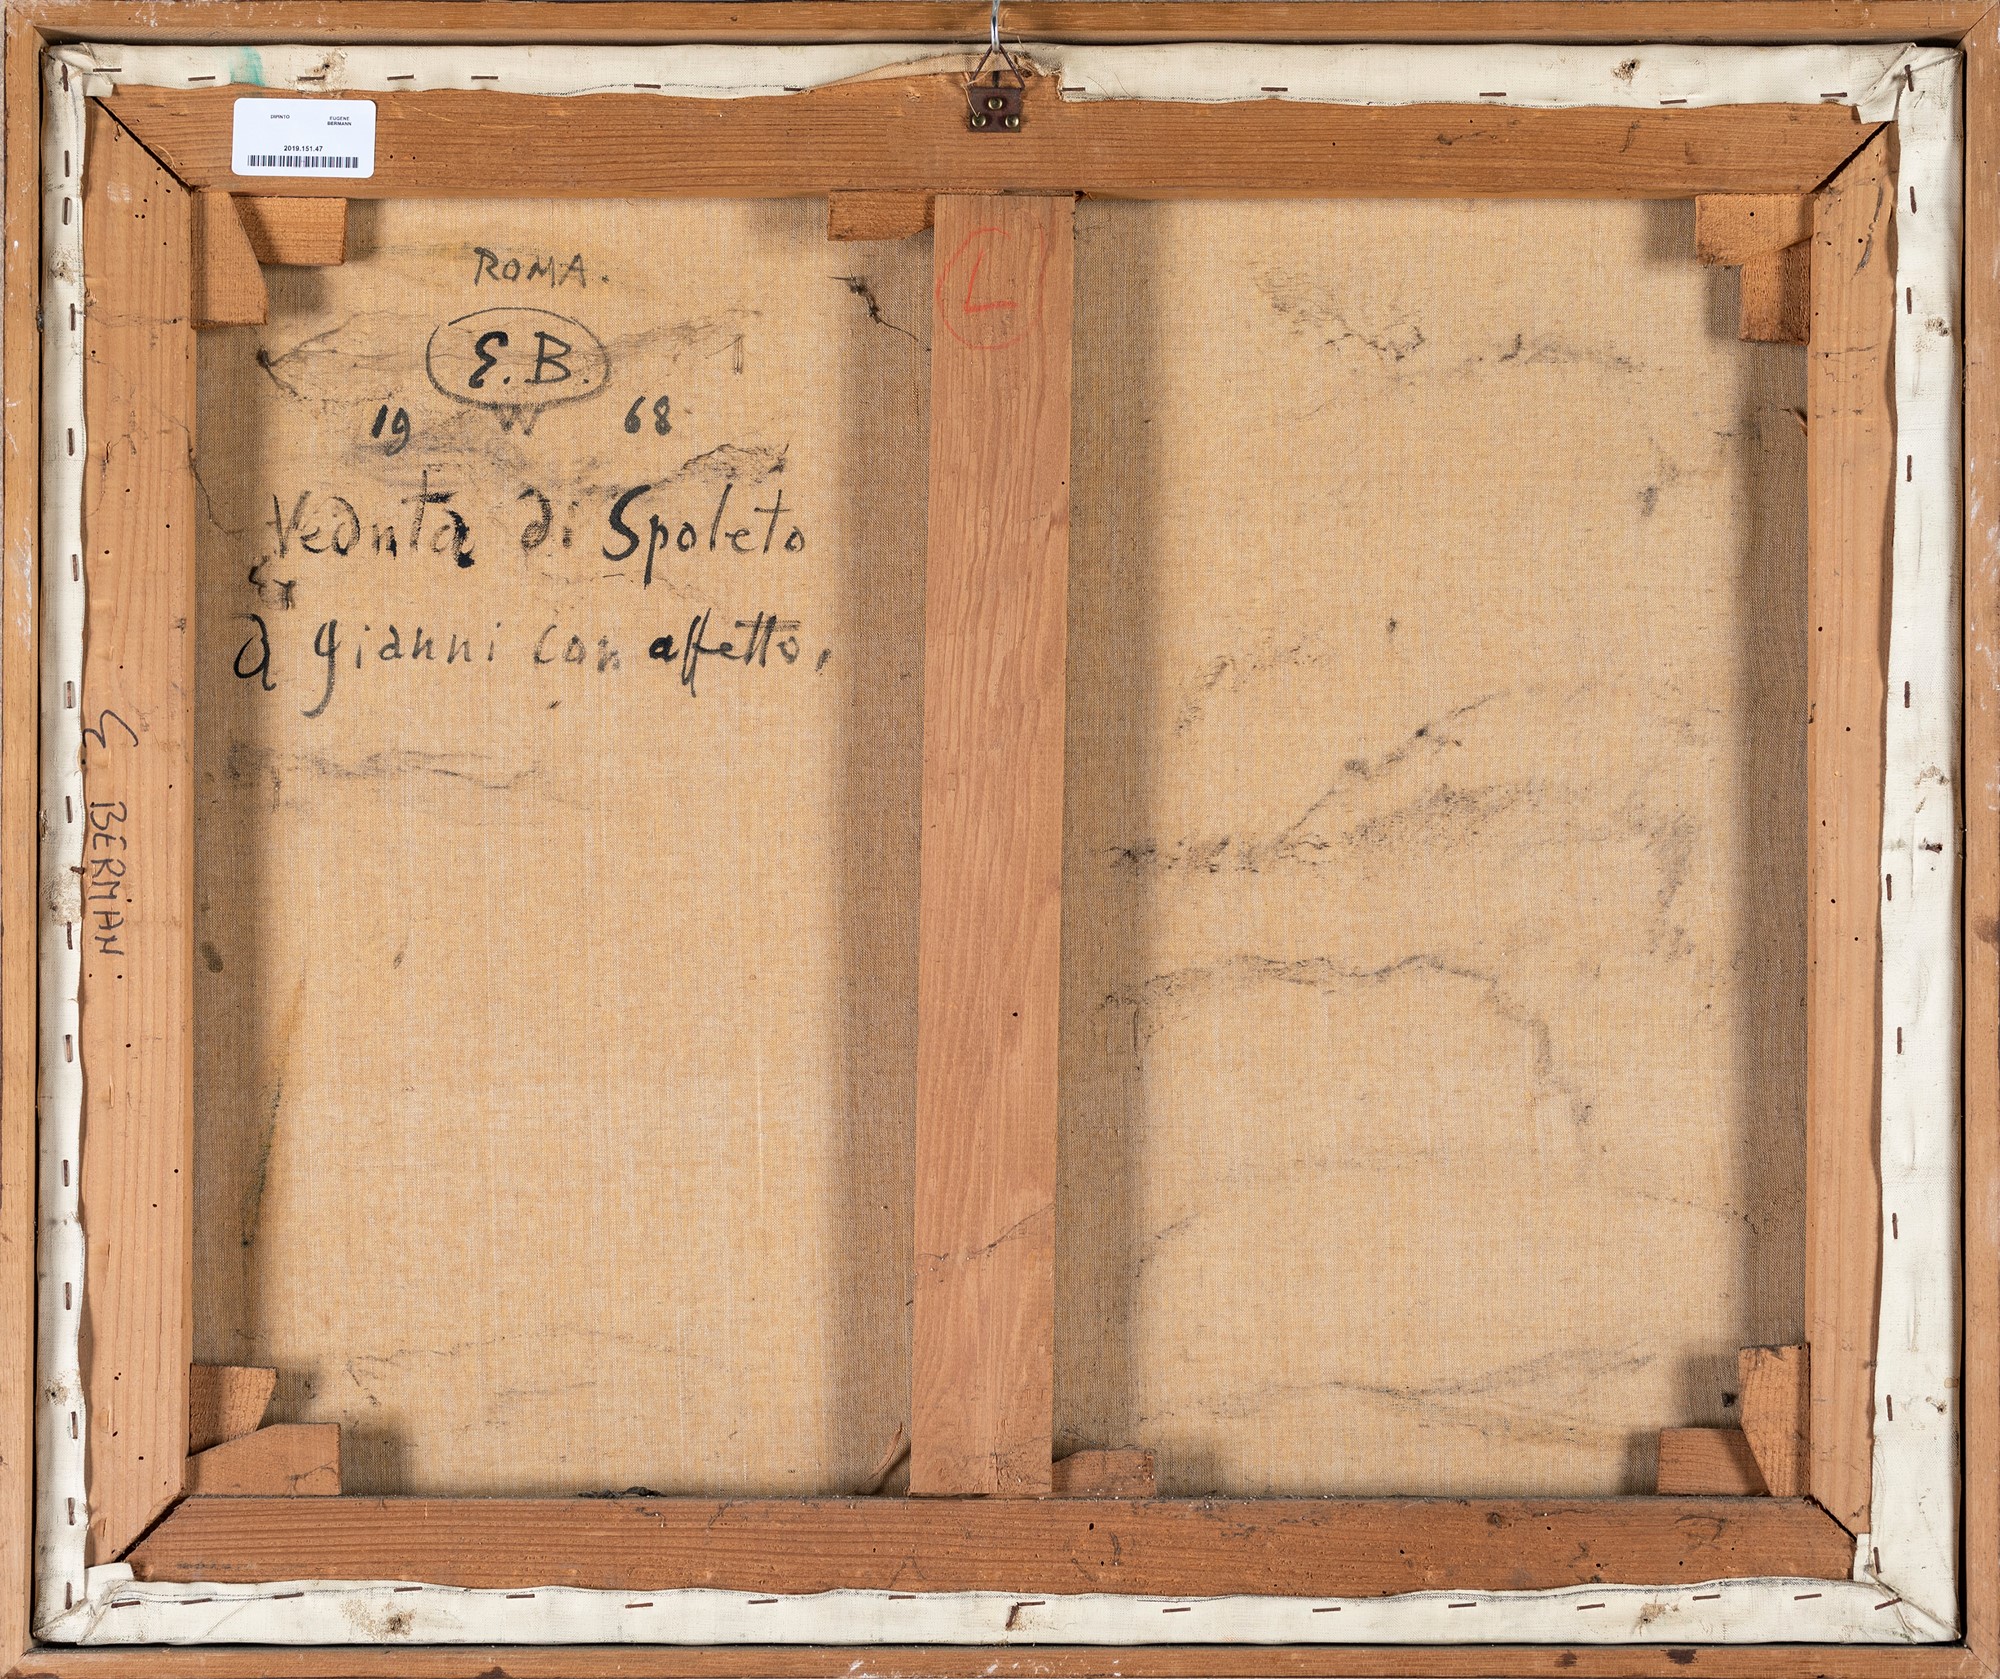 DIPINTO EUGENE
BERMANN
2019.151.47
ROMA.
E.B.
19 68
Veduta di Spoleto
a gianni con affetto.
L
E BERMAN